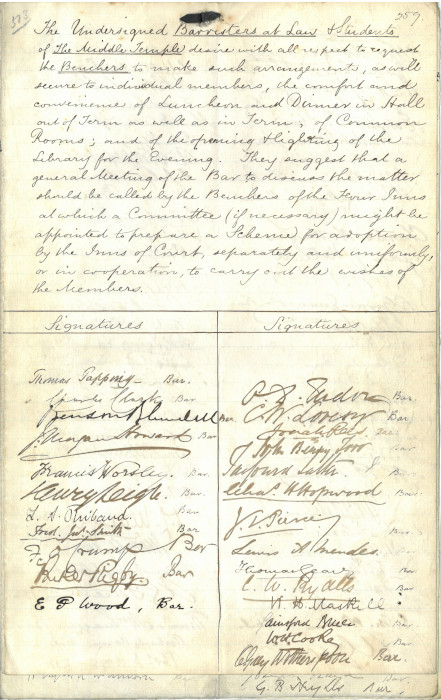 573
257.
The Undersigned Barristers at Law & Students
of The Middle Temple desire with all respect to request
the Benchers to make such arrangements, as will
secure to individual members, the comfort and
convenience of Luncheon and Dinner in Hall
out of Term as well as in Term; of Common
Rooms; and of the opening & lighting of the
Library for the Evening. They suggest that a
general Meeting of the Bar to discuss the matter
should be called by the Benchers of the Four Inns
at which a Committee (if necessary) might be
appointed to prepare a Scheme for adoption
by the Inns of Court, separately and uniformly,
or in cooperation, to carry out the wishes of
the Members.
Signatures
Thomas Tapping Bar.
Charles Clark Bar.
Bar
J. Morgan Howard Bar
Francis Worsley Bar.
Henry Leigh. Bar.
Bar
Fred. Smith Bar
Bar
Rigby Bar
E P Wood, Bar.
Signatures
Bar.
C. W. Lovesy Bar
Josiah Rees
John Bar
Balfour Bar
Chas. H Hopwood Bar.
J. T. Pierce Bar.
Lewis A Mendes Bar.
Thomas Bar.
C. W. Ryalls Bar
W. H. Maskell
Gainsford Bruce
W H Cooke
Wotherspoon Bar.
G. B. Bar